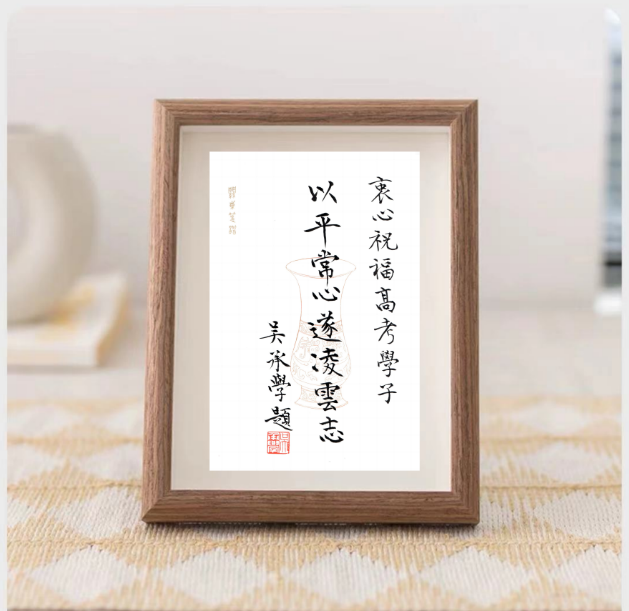 衷心祝福高考學子
以平常心遂凌雲志
吳承學題